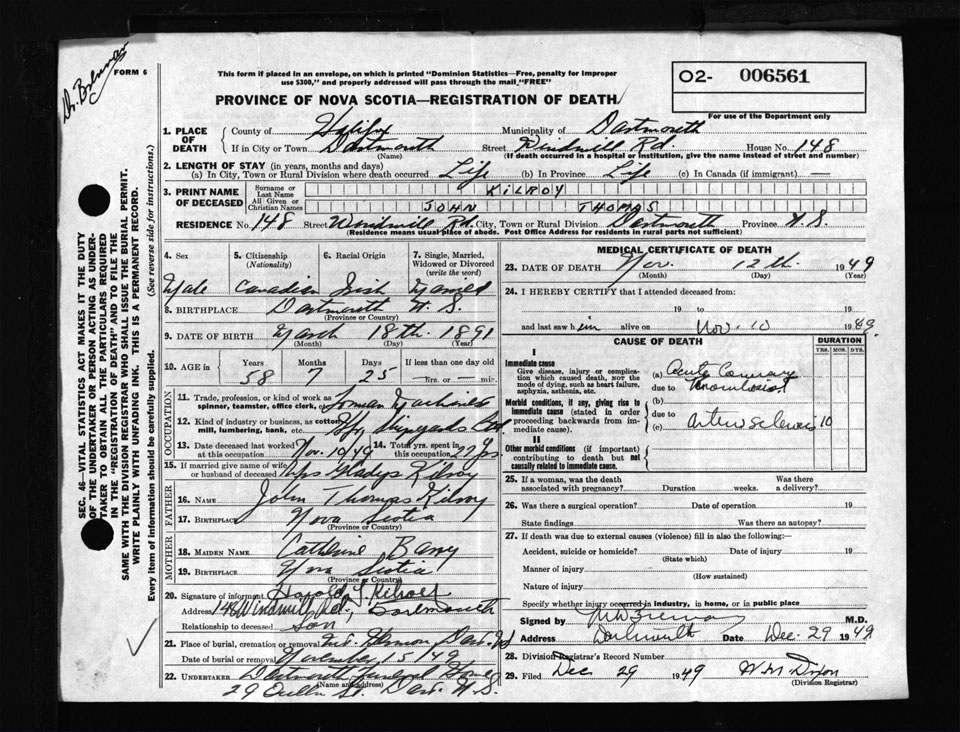 Dr.
FORM 6
This form if placed in an envelope, on which is printed "Dominion Statistics—Free, penalty for improper
use $300," and properly addressed will pass through the mail "FREE"
PROVINCE OF NOVA SCOTIA—REGISTRATION OF DEATH
O2- 006561
For use of the Department only
SEC. 46—VITAL STATISTICS ACT MAKES IT THE DUTY
OF THE UNDERTAKER OR PERSON ACTING AS UNDER-
TAKER TO OBTAIN ALL THE PARTICULARS REQUIRED
IN THE "REGISTRATION OF DEATH" AND TO FILE THE
SAME WITH THE DIVISION REGISTRAR WHO SHALL ISSUE THE BURIAL PERMIT.
WRITE PLAINLY WITH UNFADING INK. THIS IS A PERMANENT RECORD.
Every item of information should be carefully supplied. (See reverse side for instructions.)
1. PLACE OF DEATH County of Halifax Municipality of Dartmouth
If in City or Town Dartmouth Street Windmill Rd. House No. 148
(Name) (If death occurred in a hospital or institution, give the name instead of street and number)
2. LENGTH OF STAY (in years, months and days)
(a) In City, Town or Rural Division where death occurred Life (b) In Province Life (c) In Canada (if immigrant) —
3. PRINT NAME OF DECEASED Surname or Last Name KILROY
All Given or Christian Names JOHN THOMAS
RESIDENCE No. 148 Street Windmill Rd. City, Town or Rural Division Dartmouth Province N.S.
(Residence means usual place of abode. Post Office Address for residents in rural parts not sufficient)
4. Sex 5. Citizenship (Nationality) 6. Racial Origin 7. Single, Married, Widowed or Divorced (write the word)
Male Canadian Irish Married
8. BIRTHPLACE Dartmouth N.S.
(Province or Country)
9. DATE OF BIRTH March 18th. 1891
(Month) (Day) (Year)
10. AGE IN Years Months Days If less than one day old
58 7 25 hrs. or — min.
OCCUPATION
11. Trade, profession, or kind of work as spinner, teamster, office clerk, etc. Forman Machinist
12. Kind of industry or business, as cotton mill, lumbering, bank, etc. Hfx Shipyards
13. Date deceased last worked at this occupation Nov. 10/49 14. Total yrs. spent in this occupation 22 yrs.
15. If married give name of wife or husband of deceased Mrs Gladys Kilroy
FATHER
16. Name John Thomas Kilroy
17. Birthplace Nova Scotia
(Province or Country)
MOTHER
18. Maiden Name Catherine Barry
19. Birthplace Nova Scotia
(Province or Country)
20. Signature of informant Harold J. Kilroy
Address 148 Windmill Rd., Dartmouth
Relationship to deceased Son
21. Place of burial, cremation or removal Mt. Hermon, Dart.
Date of burial or removal November 15/49
22. Undertaker Dartmouth Funeral Home
(Name and address)
29 Queen St. Dart. N.S.
MEDICAL CERTIFICATE OF DEATH
23. DATE OF DEATH Nov. 12th. 1949
(Month) (Day) (Year)
24. I HEREBY CERTIFY that I attended deceased from:
19 to 19
and last saw him alive on Nov. 10 1949
CAUSE OF DEATH DURATION
YRS. MOS. DYS.
I
Immediate cause
Give disease, injury or complication which caused death, NOT the mode of dying, such as heart failure, asphyxia, asthenia, etc.
(a) Acute Coronary
due to Thrombosis
Morbid conditions, if any, giving rise to immediate cause (stated in order proceeding backwards from immediate cause).
(b)
due to
(c) Arteriosclerosis 10
II
Other morbid conditions (if important) contributing to death but not causally related to immediate cause.
25. If a woman, was the death associated with pregnancy? Duration weeks. Was there a delivery?
26. Was there a surgical operation? Date of operation 19
State findings Was there an autopsy?
27. If death was due to external causes (violence) fill in also the following:—
Accident, suicide or homicide? Date of injury 19
(State which)
Manner of injury
(How sustained)
Nature of injury
Specify whether injury occurred in industry, in home, or in public place
Signed by M.D.
Address Dartmouth Date Dec. 29 1949
28. Division Registrar's Record Number
29. Filed Dec 29 1949 W.M. Dixon
(Division Registrar)